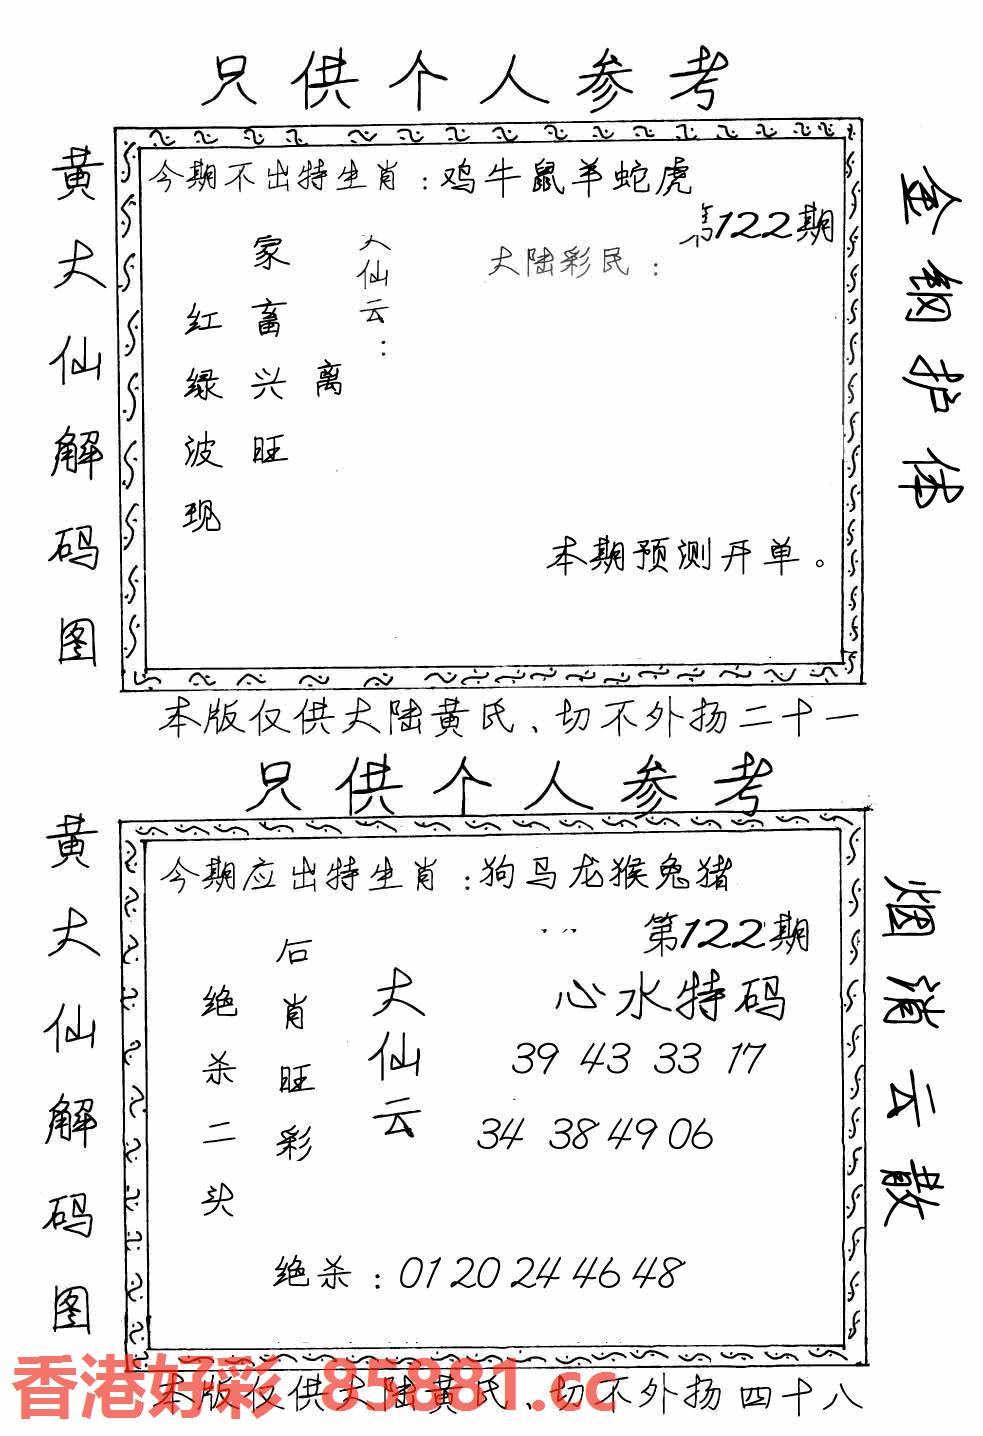 只供个人参考
黄大仙解码图
今期不出特生肖：鸡牛鼠羊蛇虎
第122期
大陆彩民：
大仙云：
离
家畜兴旺
红绿波现
本期预测开单。
金钢护体
本版仅供大陆黄氏、切不外扬二十一
只供个人参考
黄大仙解码图
今期应出特生肖：狗马龙猴兔猪
第122期
心水特码
39 43 33 17
34 38 49 06
大仙云
后肖旺彩
绝杀二头
绝杀：01 20 24 46 48
烟消云散
本版仅供大陆黄氏、切不外扬四十八
香港好彩 85881.cc